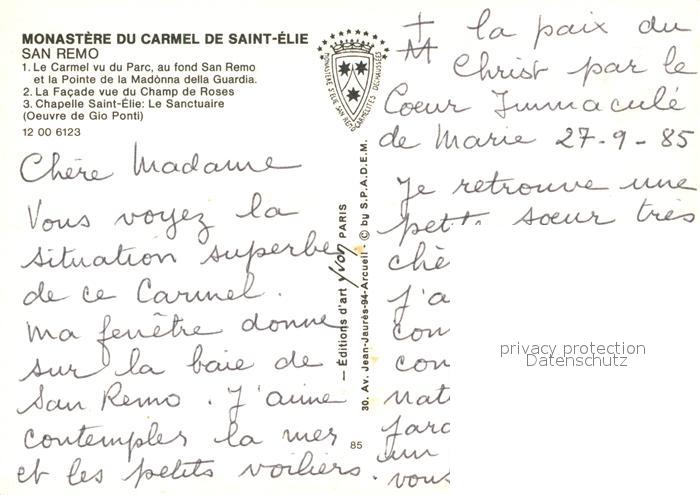 MONASTÈRE DU CARMEL DE SAINT-ÉLIE
SAN REMO
1. Le Carmel vu du Parc, au fond San Remo
et la Pointe de la Madònna della Guardia.
2. La Façade vue du Champ de Roses
3. Chapelle Saint-Élie: Le Sanctuaire
(Oeuvre de Gio Ponti)
12 00 6123
Chère Madame
Vous voyez la
situation superbe
de ce Carmel.
Ma fenêtre donne
sur la baie de
San Remo. J'aime
contempler la mer
et les petits voiliers.
MONASTÈRE S'ÉLIE SAN REMO CARMÉLITES DÉCHAUSSÉES
— Éditions d'art yvon PARIS
30. Av. Jean-Jaurès-94-Arcueil - © by S.P.A.D.E.M.
85
M la paix du
Christ par le
Coeur Immaculé
de Marie 27-9-85
Je retrouve une
petit soeur très
chè
j'a
con
con
nat
un
vous
privacy protection
Datenschutz